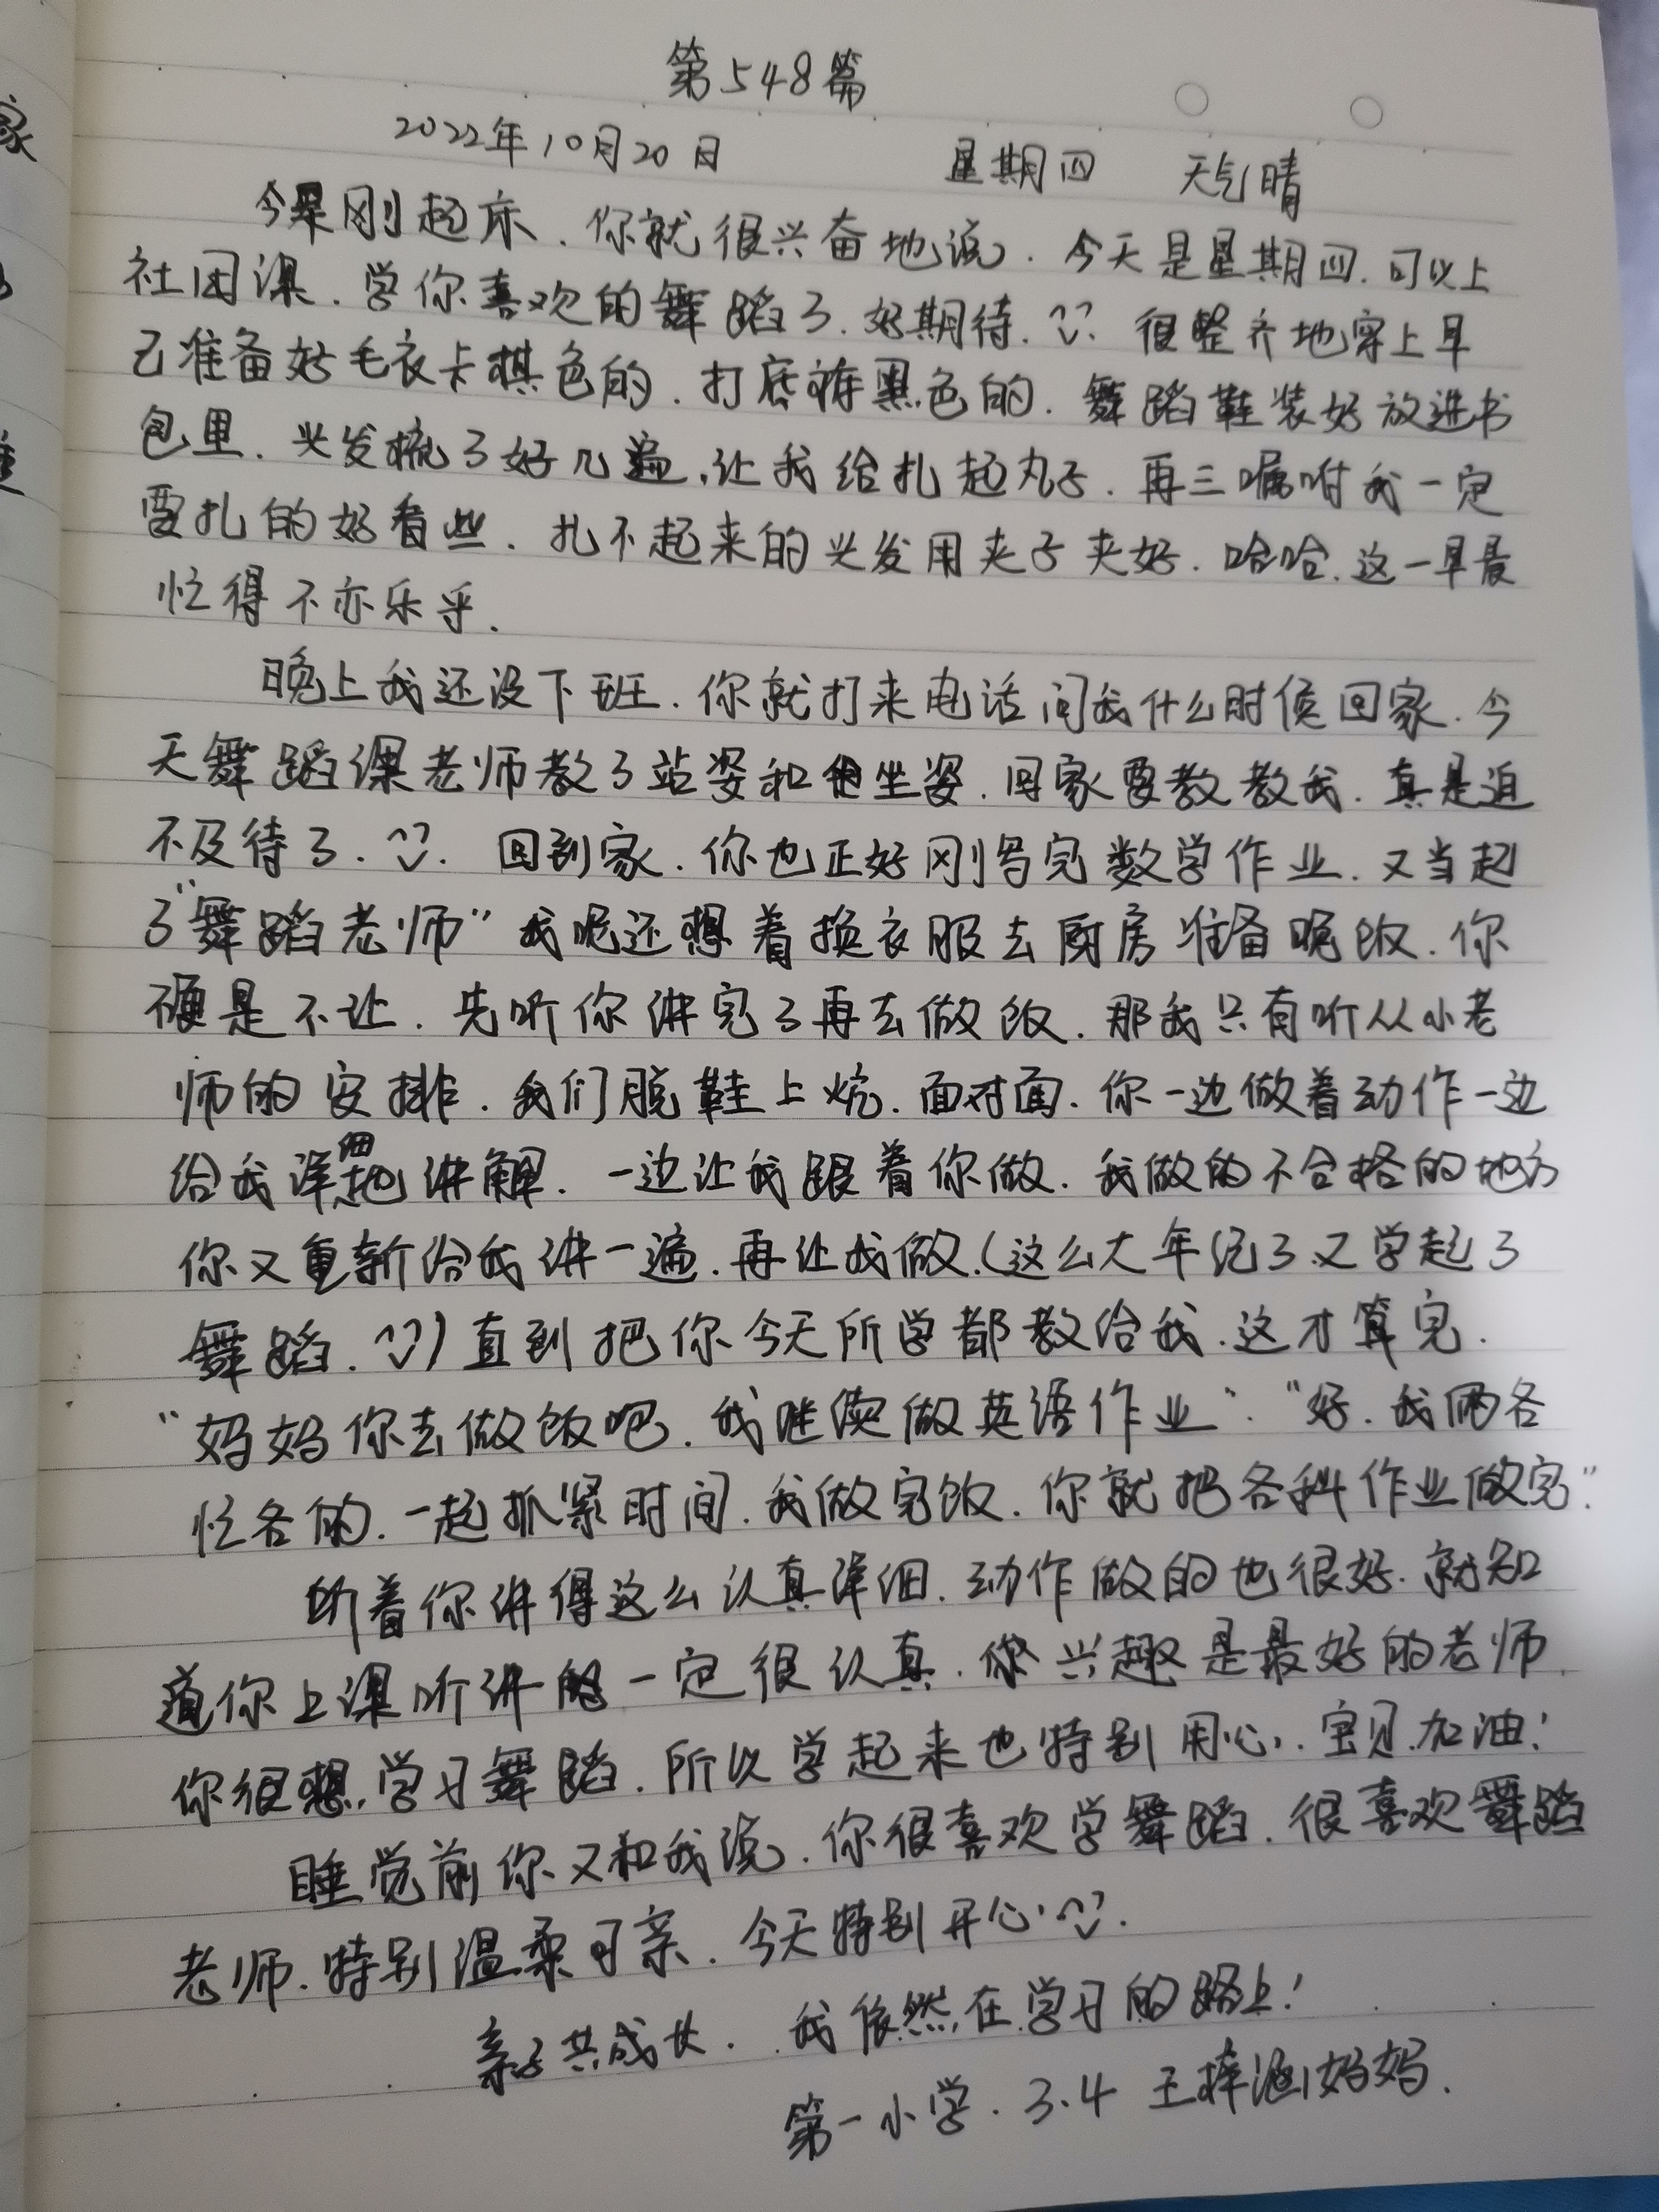 第548篇
2022年10月20日 星期四 天气晴
今早刚起床.你就很兴奋地说.今天是星期四.可以上
社团课.学你喜欢的舞蹈了.好期待.很整齐地穿上早
已准备好毛衣卡棋色的.打底裤黑色的.舞蹈鞋装好放进书
包里.头发梳了好几遍.让我给扎起丸子.再三嘱咐我一定
要扎的好看些.扎不起来的头发用夹子夹好.哈哈.这一早晨
忙得不亦乐乎.
晚上我还没下班.你就打来电话问我什么时侯回家.今
天舞蹈课老师教了站姿和坐姿.回家要教教我.真是迫
不及待了.回到家.你也正好刚写完数学作业.又当起
了"舞蹈老师"我呢还想着换衣服去厨房准备晚饭.你
硬是不让.先听你讲完了再去做饭.那我只有听从小老
师的安排.我们脱鞋上炕.面对面.你一边做着动作一边
给我详细地讲解.一边让我跟着你做.我做的不合格的地方
你又重新给我讲一遍.再让我做.(这么大年纪了.又学起了
舞蹈.)直到把你今天所学都教给我.这才算完.
"妈妈你去做饭吧.我继续做英语作业"."好.我俩各
忙各的.一起抓紧时间.我做完饭.你就把各科作业做完."
听着你讲得这么认真详细.动作做的也很好.就知
道你上课听讲的一定很认真.兴趣是最好的老师.
你很想学习舞蹈.所以学起来也特别用心.宝贝.加油!
睡觉前你又和我说.你很喜欢学舞蹈.很喜欢舞蹈
老师.特别温柔可亲.今天特别开心.
亲子共成长.我依然在学习的路上!
第一小学.3.4 王梓涵妈妈.
家